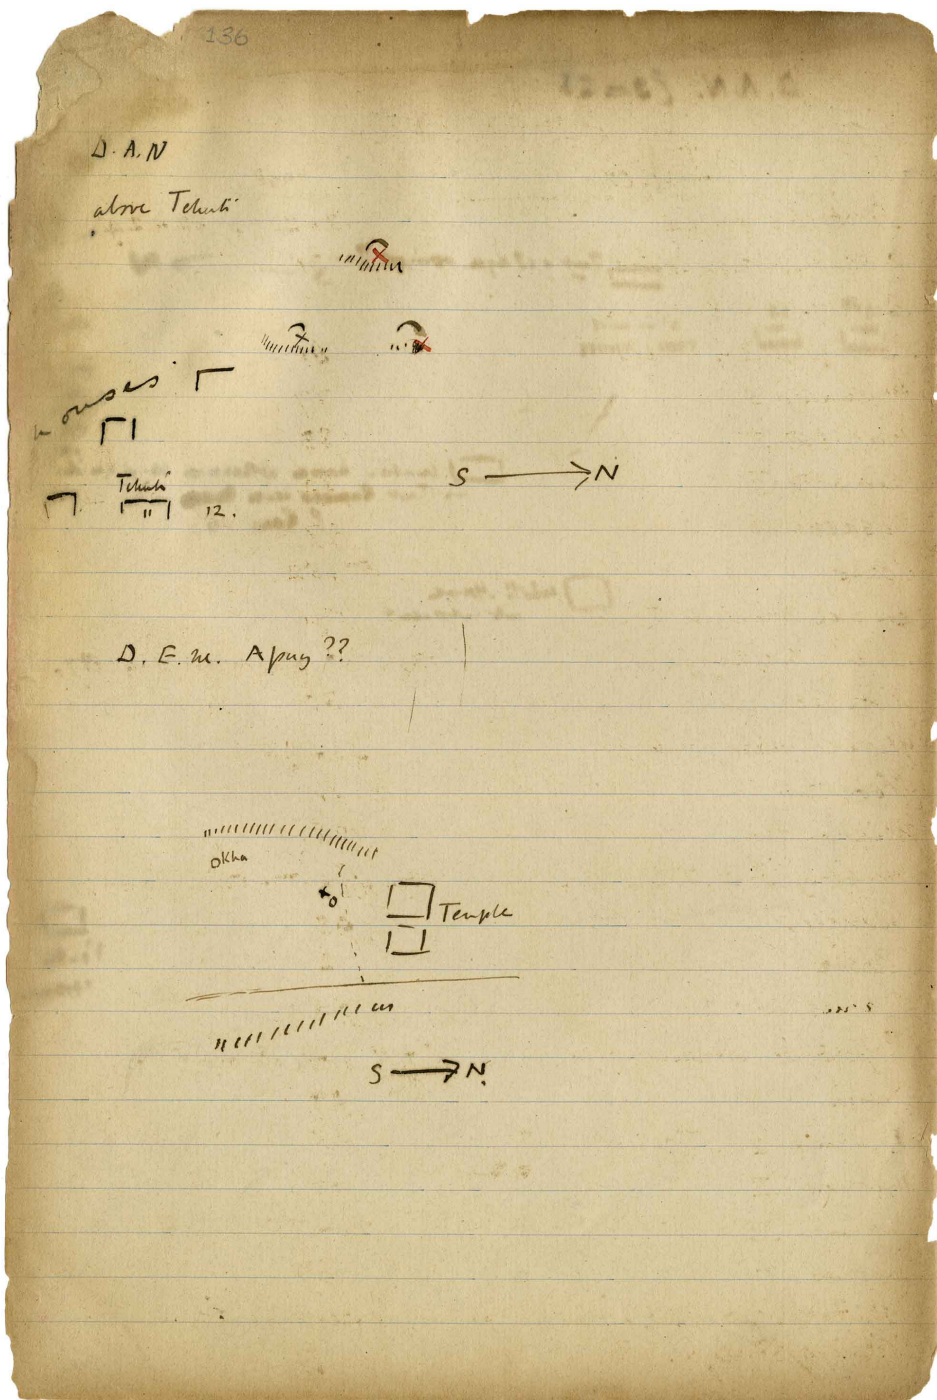 136
D.A.N
above Tehuti
houses
S N
Tehuti
11 12.
D. E. M. Apuy ??
Kha
Temple
S N.